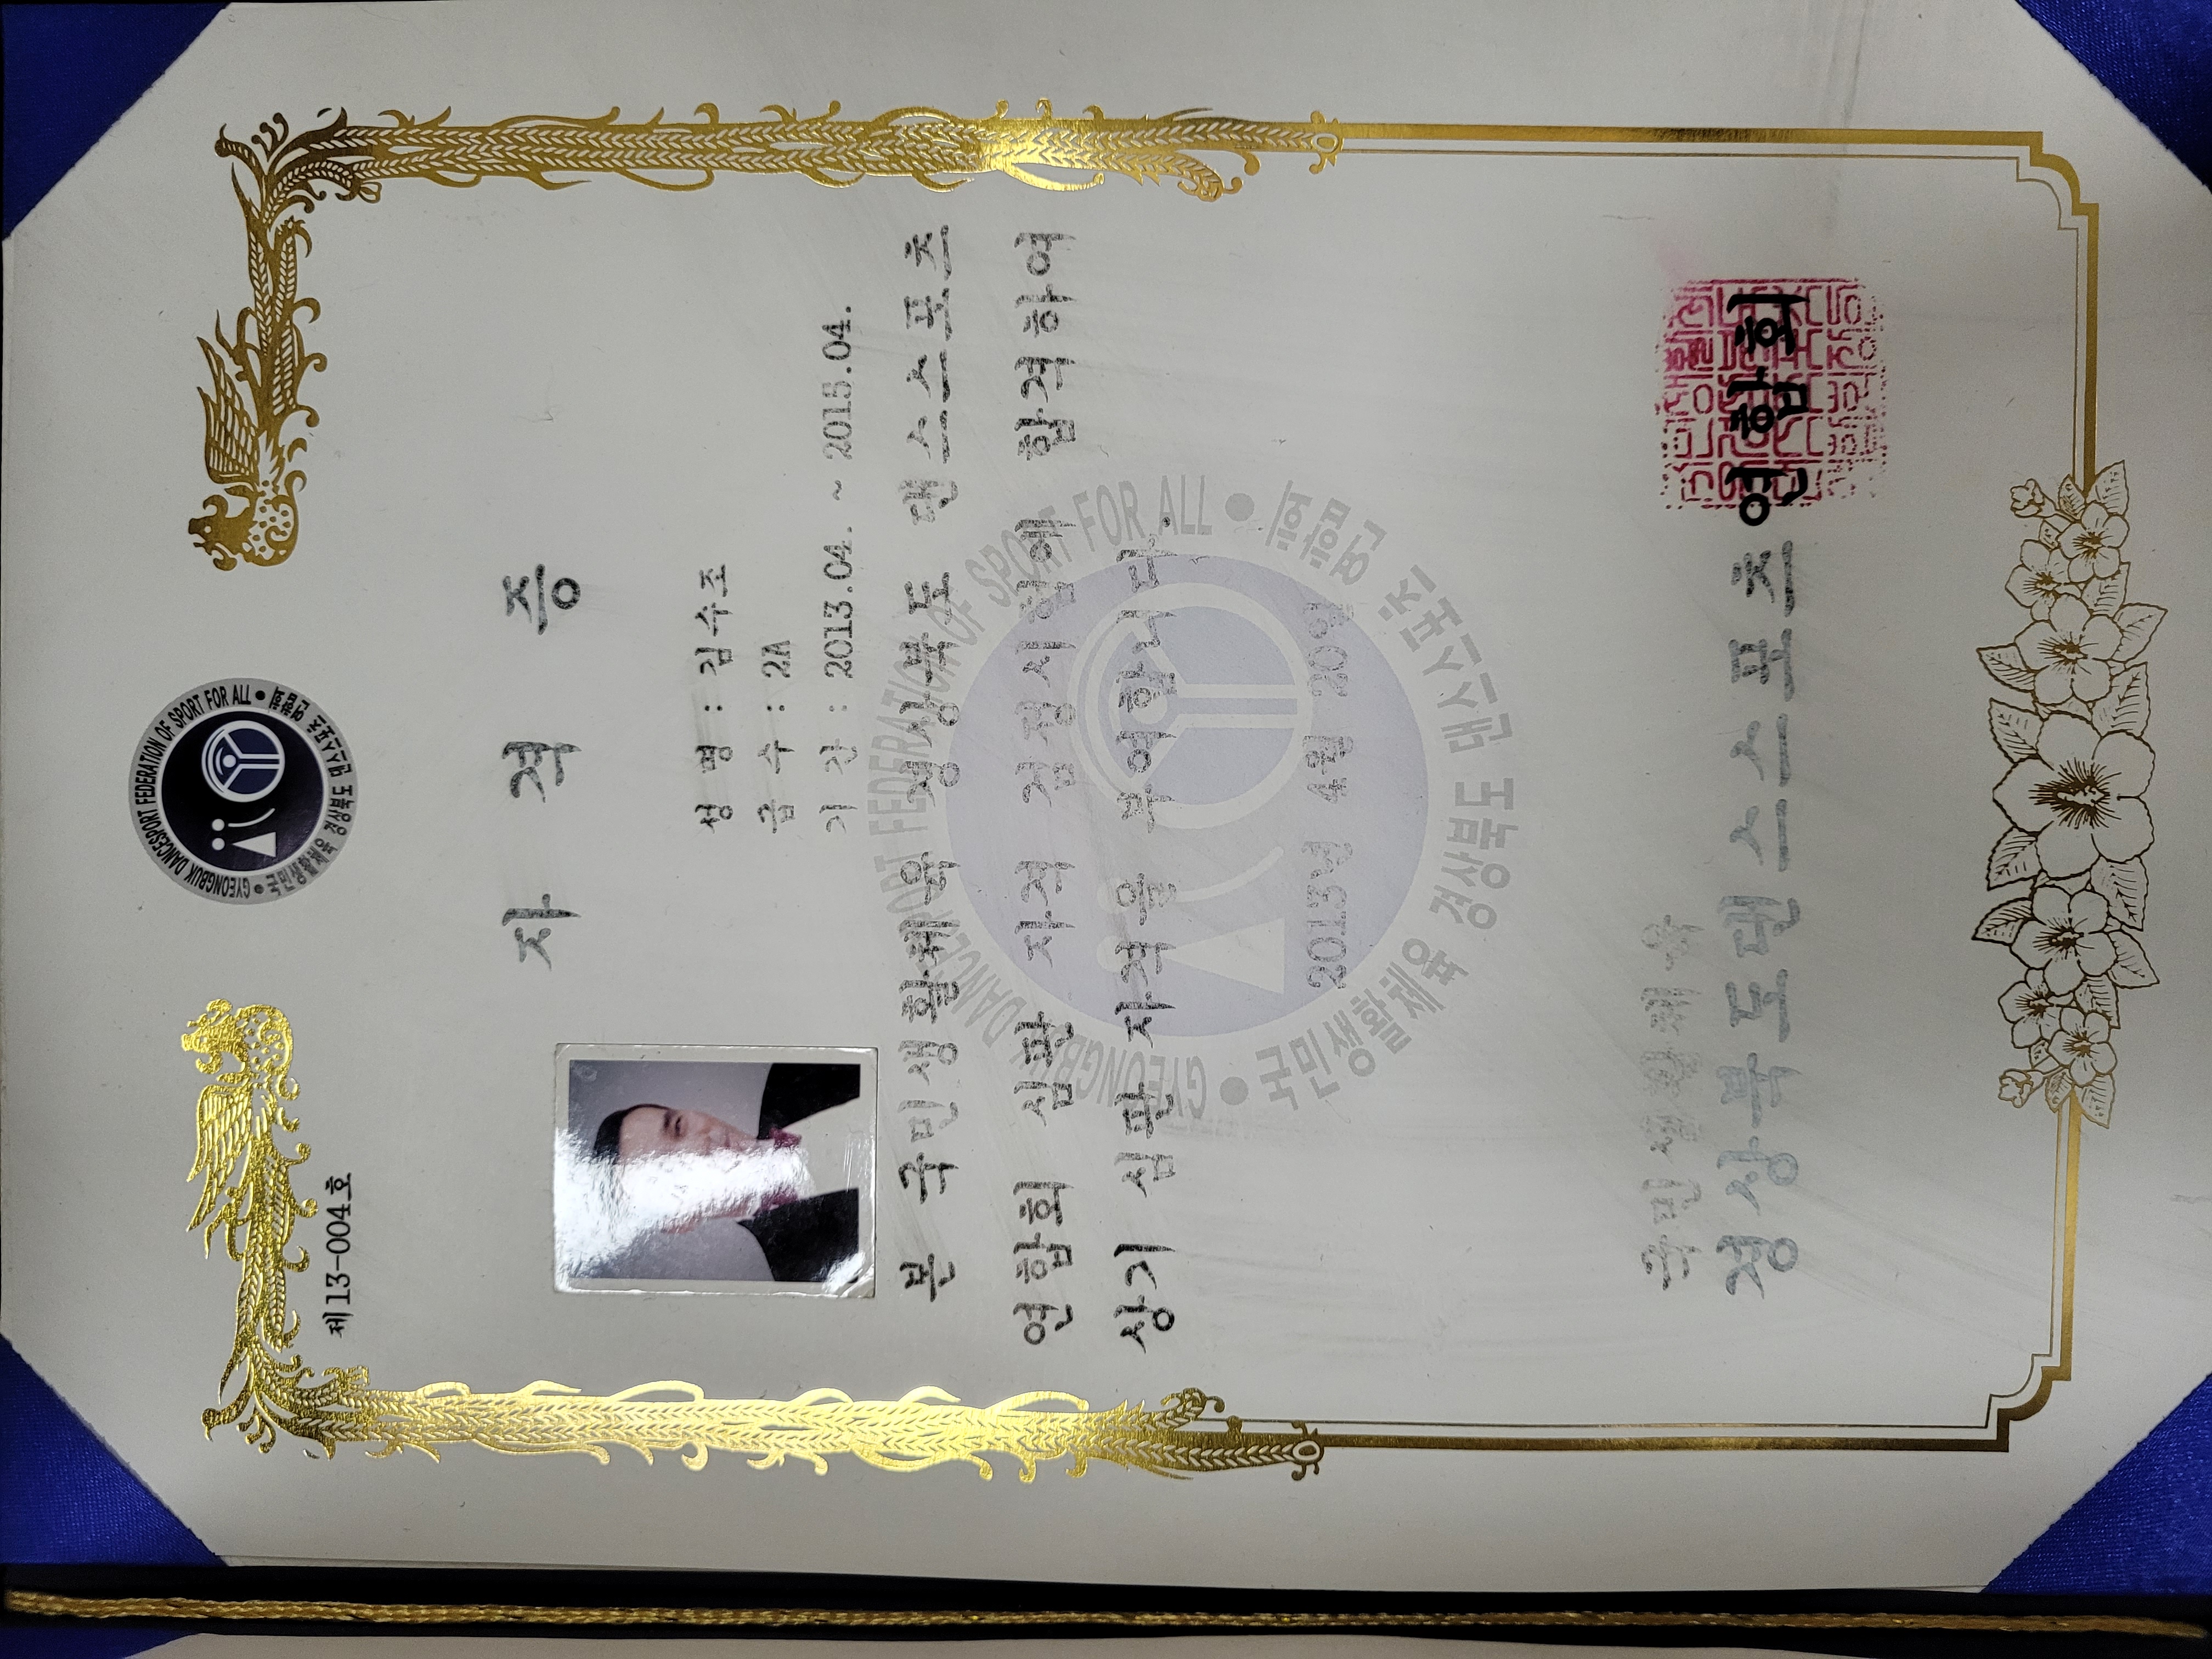 제13-004호
GYEONGBUK DANCESPORT FEDERATION OF SPORT FOR ALL
국민생활체육 경상북도 댄스스포츠 연합회
자 격 증
성 명 : 김수조
급 수 : 2A
기 간 : 2013.04. ~ 2015.04.
본 국민생활체육 경상북도 댄스스포츠
연합회 심판 자격 검정시험에 합격하여
상기 심판 자격을 부여합니다.
2013년 4월 20일
GYEONGBUK DANCESPORT FEDERATION OF SPORT FOR ALL
국민생활체육 경상북도 댄스스포츠 연합회
국민생활체육
경상북도댄스스포츠연합회